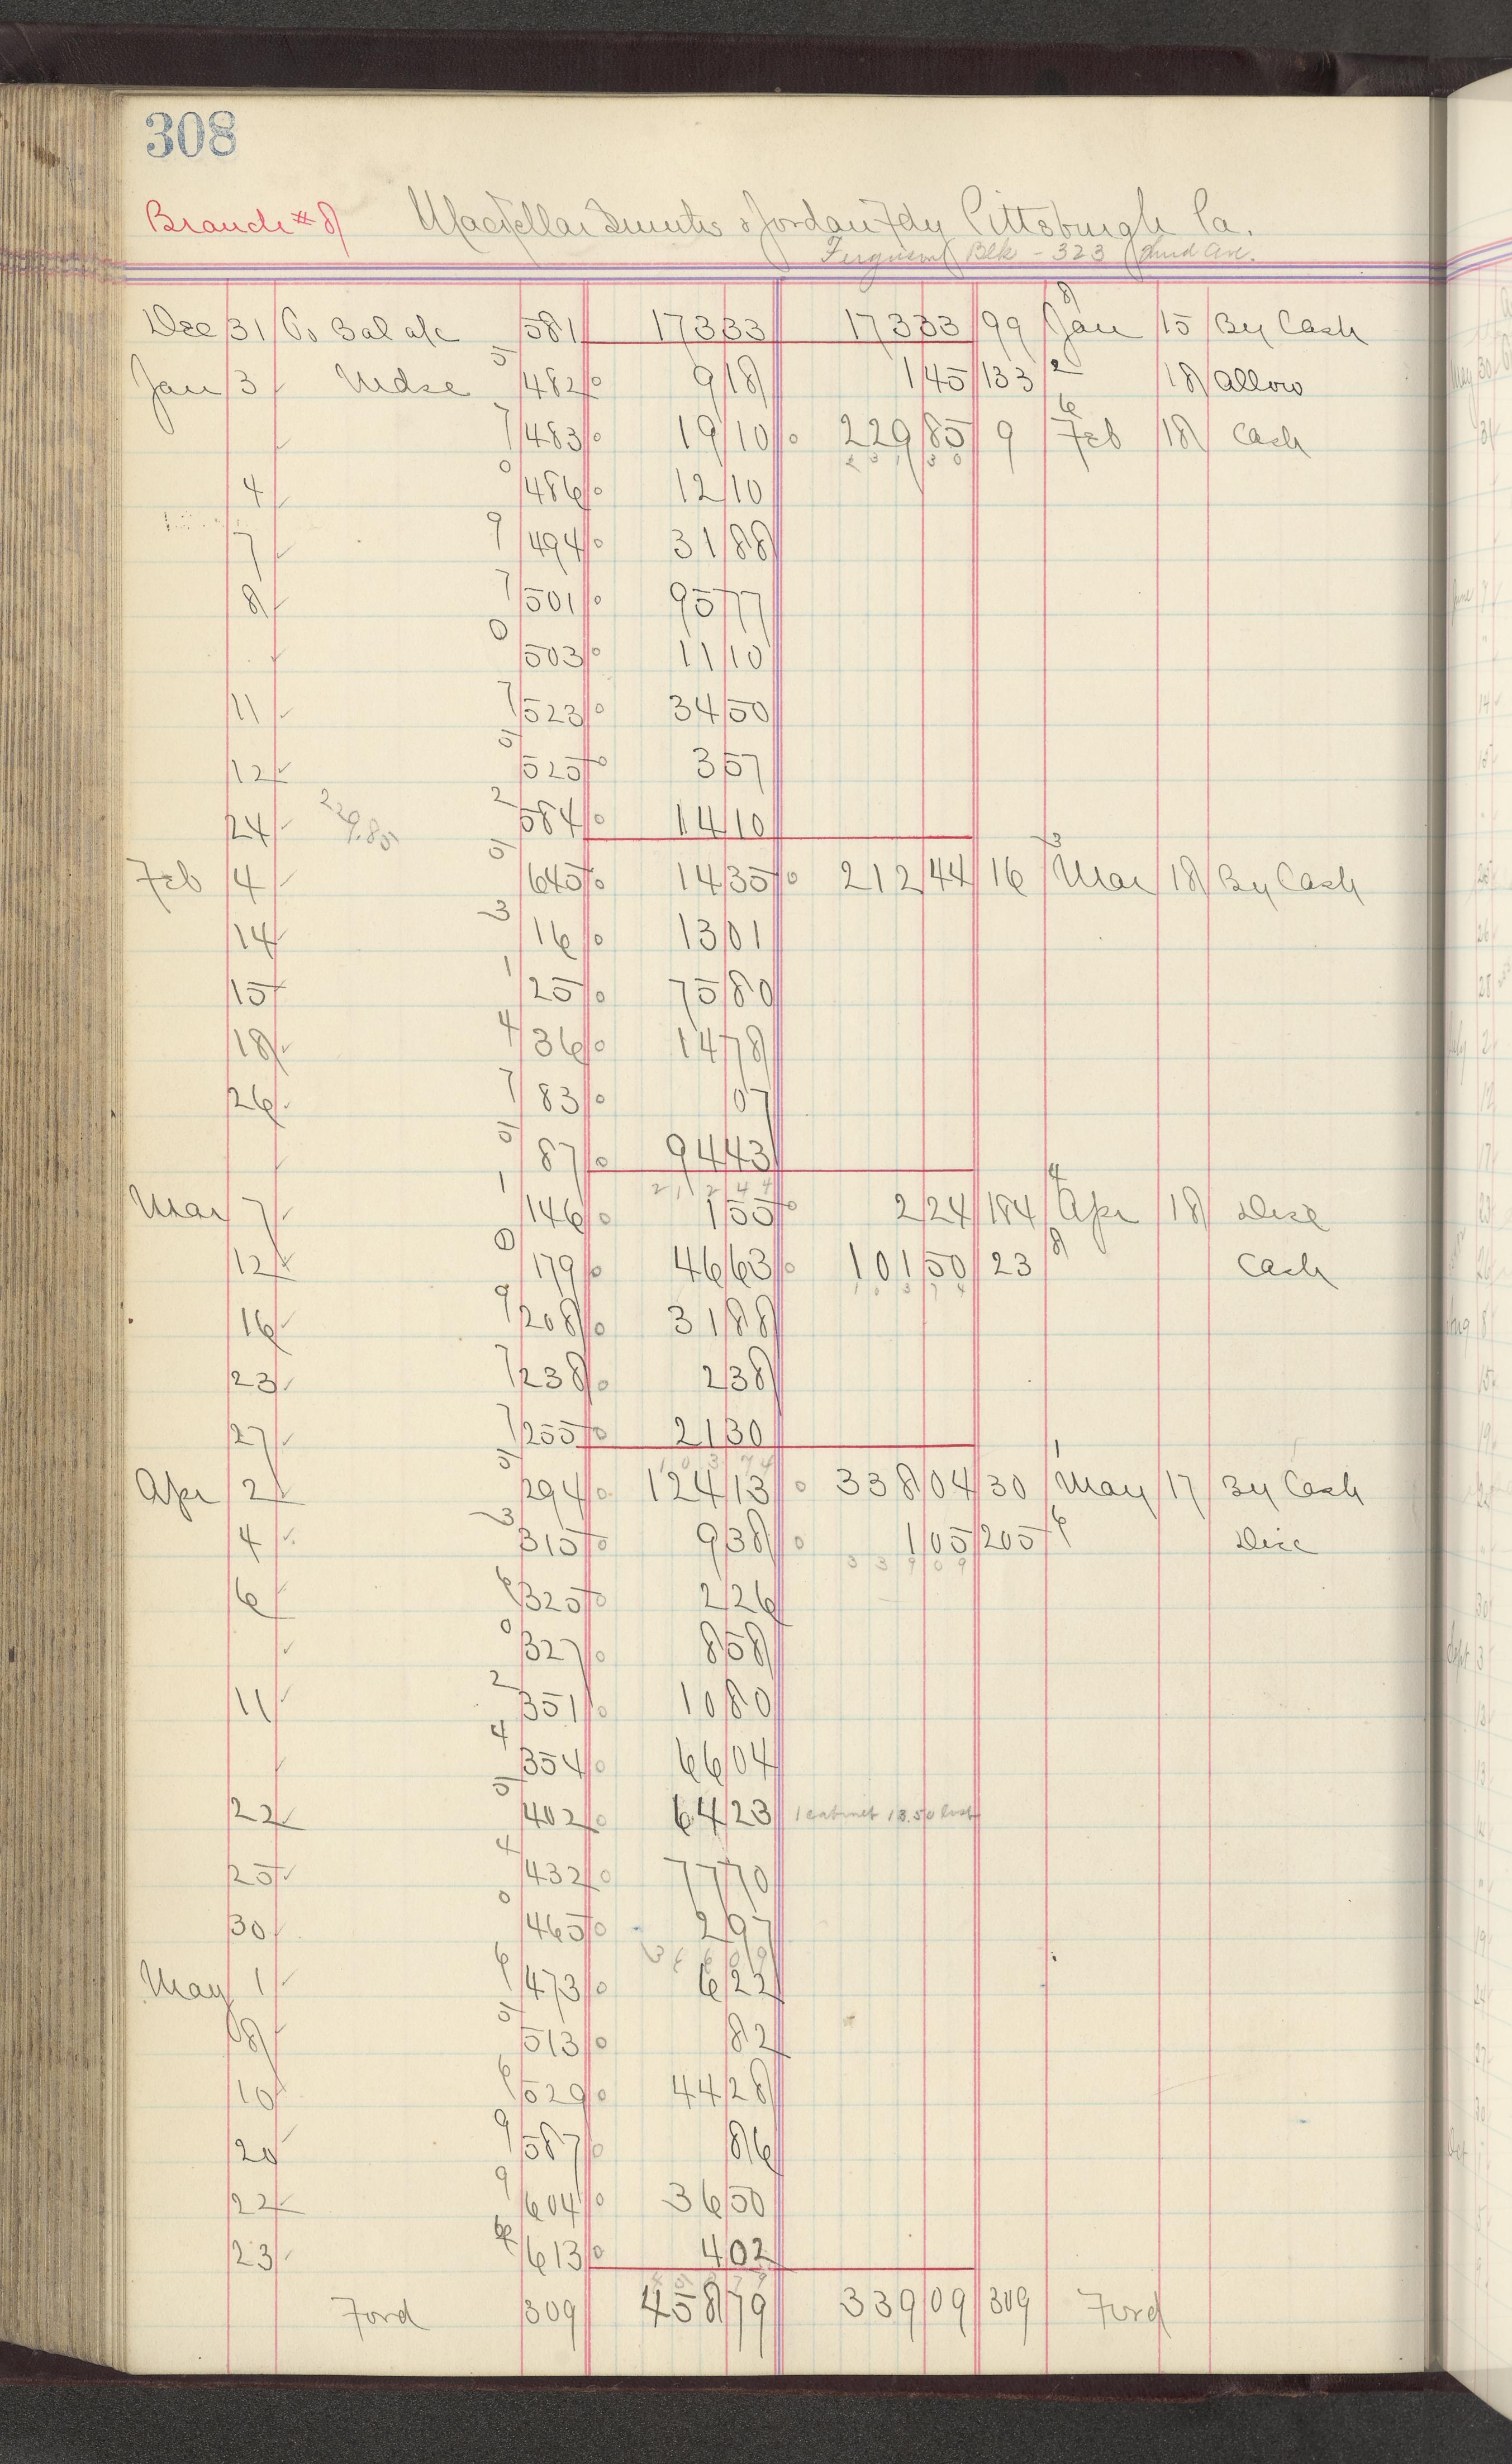 308
Branch #8 MacKellar Smiths & Jordan Fdy Pittsburgh Pa.
Ferguson Blk - 323 Third Ave.
Dec 31 To Bal a/c 581 173 33 173 33 99 8 Jan 15 By Cash
Jan 3 Mdse 5 482 9 18 1 45 133 2 18 Allow
7 483 19 10 229 85 9 6 Feb 18 Cash
231 30
4 0 486 12 10
7 9 494 31 88
8 7 501 95 77
0 503 11 10
11 7 523 34 50
12 5 525 3 57
24 229.85 2 584 14 10
Feb 4 5 645 14 35 212 44 16 3 Mar 18 By Cash
14 3 16 13 01
15 1 25 75 80
18 4 36 14 78
26 7 83 07
5 87 94 43
212 44
Mar 7 1 146 1 55 2 24 184 4 Apr 18 Disc
12 0 179 46 63 101 50 23 8 Cash
103 74
16 9 208 31 88
23 7 238 2 38
27 7 255 21 30
103 74
Apr 2 5 294 124 13 338 04 30 1 May 17 By Cash
4 3 315 9 38 1 05 205 6 Disc
339 09
6 6 325 2 26
0 327 8 58
11 2 351 10 80
4 354 66 04
22 5 402 64 23 1 cabinet 13.50 lost
25 4 432 77 70
30 0 465 2 97
May 1 6 473 6 22
8 5 513 82
10 6 529 44 28
20 9 587 86
22 9 604 36 50
23 613 4 02
Ford 309 458 79 339 09 309 Ford